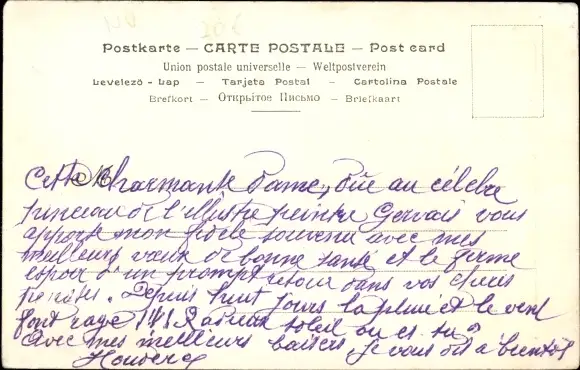 Postkarte — CARTE POSTALE — Post card
Union postale universelle — Weltpostverein
Levelező - Lap — Tarjeta Postal — Cartolina Postale
Brefkort — Открытое Письмо — Briefkaart
Cette charmante Dame, dûe au célèbre
pinceau de l'illustre peintre Gervais vous
apporte mon fidèle souvenir avec mes
meilleurs vœux de bonne santé et le ferme
espoir d'un prompt retour dans vos chères
pensées. Depuis huit jours la pluie et le vent
font rage !!! soleil où es-tu?
Avec mes meilleurs baisers je vous dis à bientôt